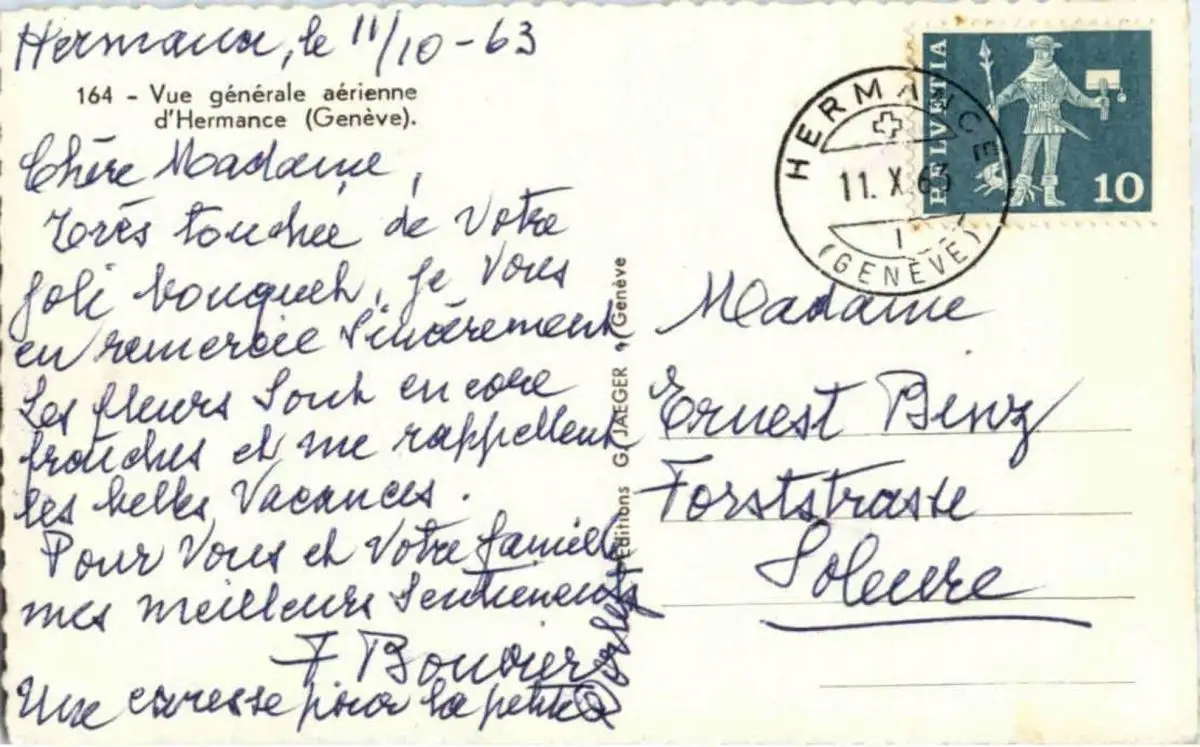 Hermance, le 11/10-63
164 - Vue générale aérienne
d'Hermance (Genève).
Chère Madame,
Très touchée de Votre
joli bouquet, je Vous
en remercie Sincèrement
Les fleurs Sont encore
fraîches et me rappellent
les belles Vacances.
Pour Vous et Votre famille
mes meilleurs Sentiments
F. Bouvier
Une caresse pour la petite
Éditions G. JAEGER, Genève
HERMANCE
11. X. 63
1
(GENÈVE)
HELVETIA
10
Madame
Ernest Binz
Forststrasse
Soleure